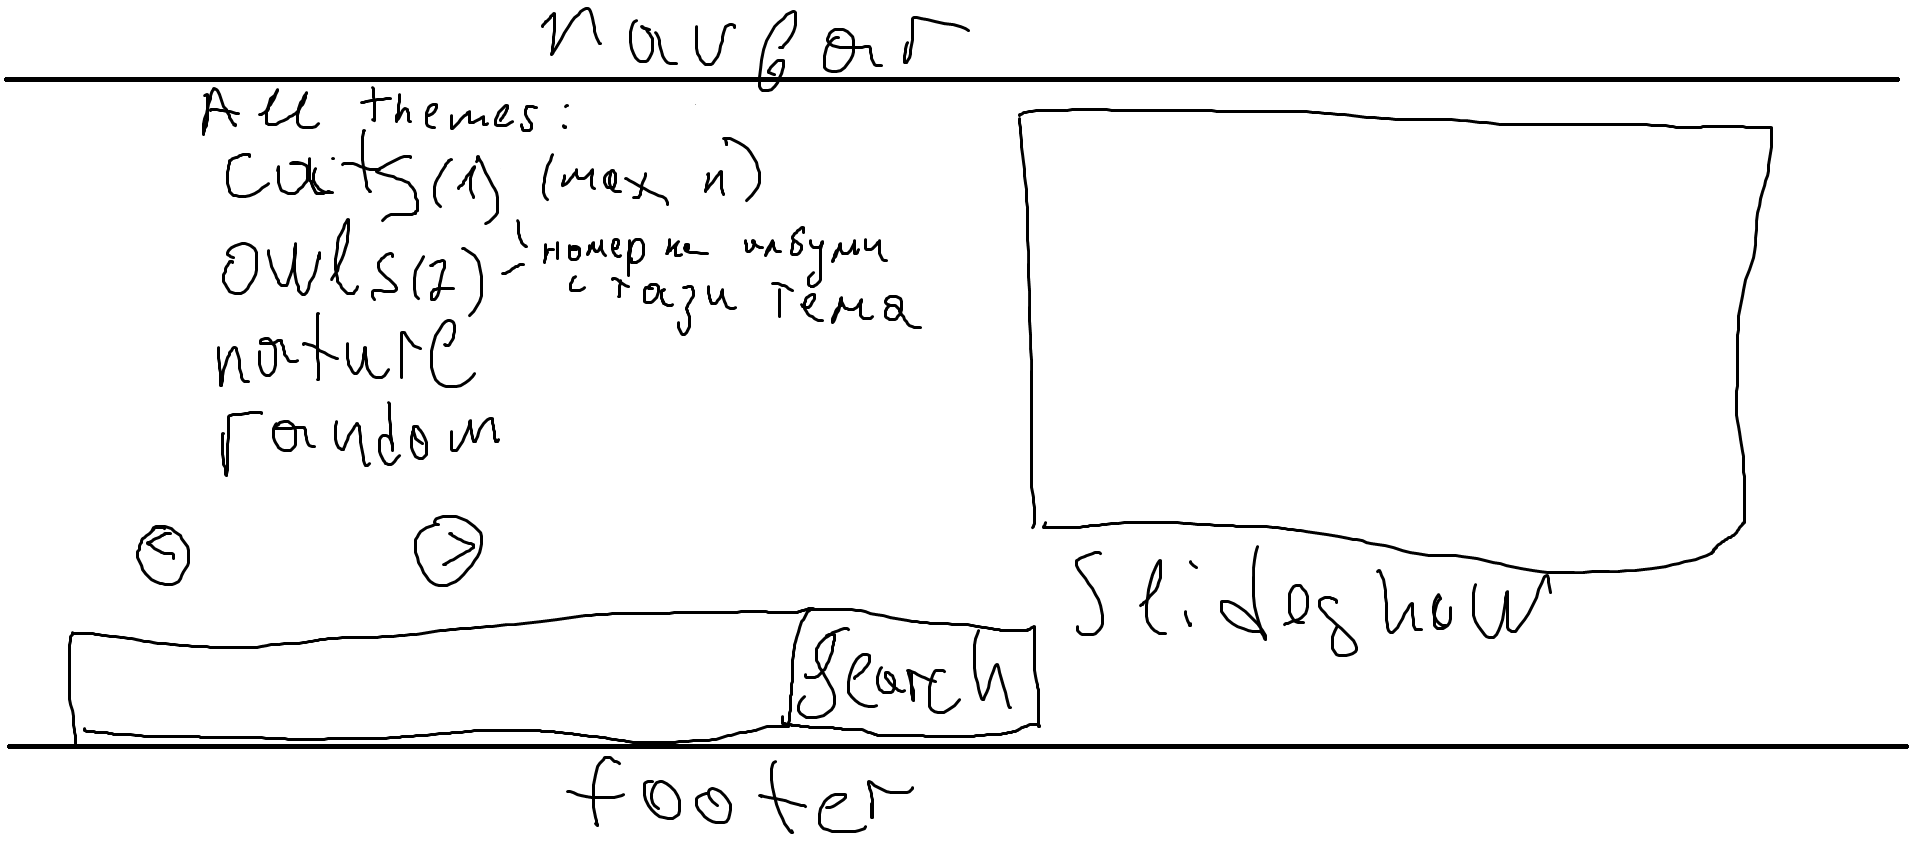 navbar
All themes:
cats(1) (max n)
owls(2) - номер на албуми
с тази тема
nature
random
<
>
Slideshow
Search
footer